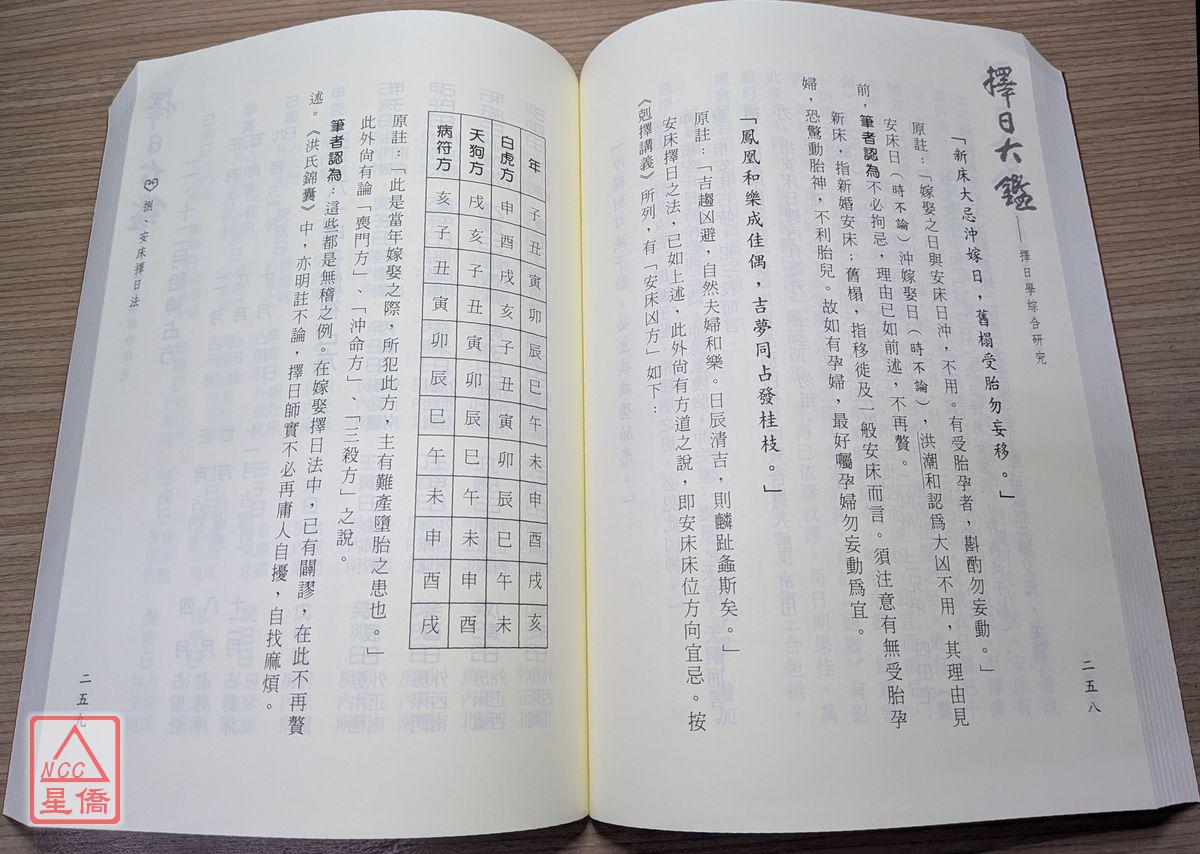 擇日大鑑——擇日學綜合研究
二五八
「新床大忌沖嫁日，舊榻受胎勿妄移。」
原註：「嫁娶之日與安床日沖，不用。有受胎孕者，斟酌勿妄動。」
安床日（時不論）沖嫁娶日（時不論），洪潮和認爲大凶不用，其理由見
前，筆者認為不必拘忌，理由已如前述，不再贅。
新床，指新婚安床：舊榻，指移徙及一般安床而言。須注意有無受胎孕
婦，恐驚動胎神，不利胎兒。故如有孕婦，最好囑孕婦勿妄動爲宜。
「鳳凰和樂成佳偶，吉夢同占發桂枝。」
原註：「吉趨凶避，自然夫婦和樂。日辰清吉，則麟趾螽斯矣。」
安床擇日之法，已如上述，此外尙有方道之說，即安床床位方向宜忌。按
《剋擇講義》所列，有「安床凶方」如下：
年 子 丑 寅 卯 辰 巳 午 未 申 酉 戌 亥
白虎方 申 酉 戌 亥 子 丑 寅 卯 辰 巳 午 未
天狗方 戌 亥 子 丑 寅 卯 辰 巳 午 未 申 酉
病符方 亥 子 丑 寅 卯 辰 巳 午 未 申 酉 戌
原註：「此是當年嫁娶之際，所犯此方，主有難產墮胎之患也。」
此外尙有論「喪門方」、「沖命方」、「三殺方」之說。
筆者認為：這些都是無稽之例。在嫁娶擇日法中，已有闢謬，在此不再贅
述。《洪氏錦囊》中，亦明註不論，擇日師實不必再庸人自擾，自找麻煩。
捌、安床擇日法
二五九
NCC
星僑